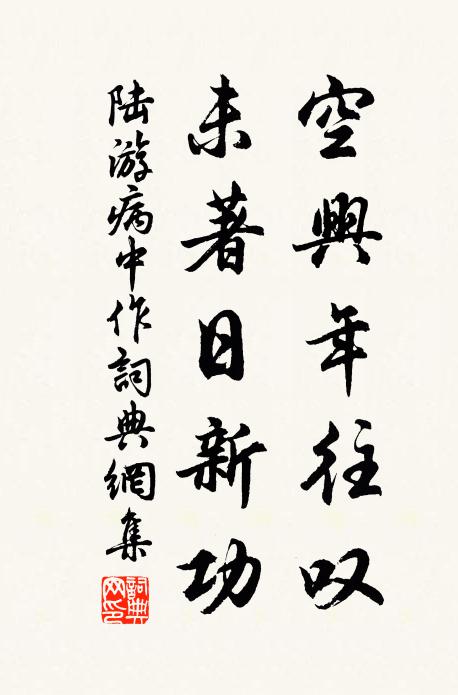 空興年往叹
未著日新功
陸游病中作詞典網集
詞典網印